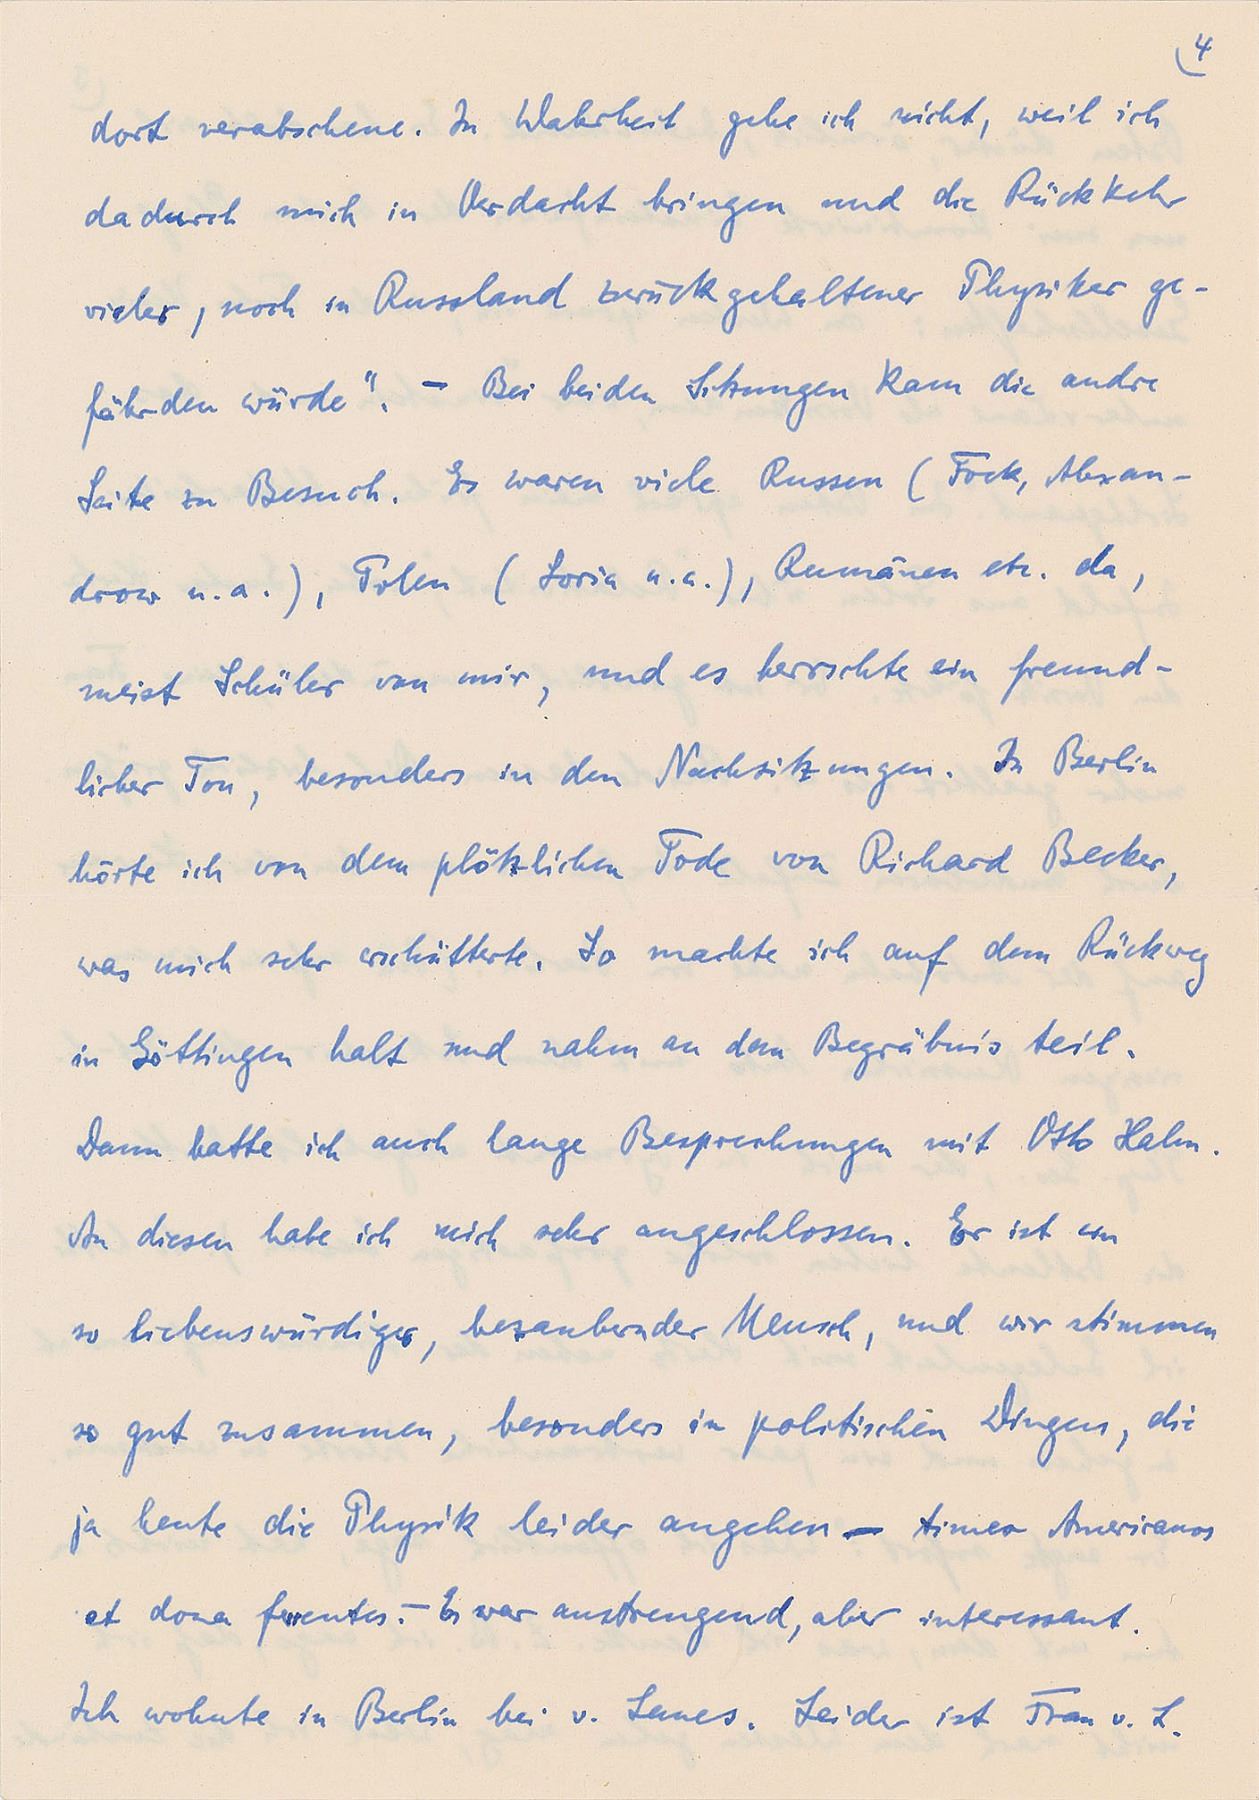 4
dort verabscheue. In Wahrheit gehe ich nicht, weil ich
dadurch mich in Verdacht bringen und die Rückkehr
vieler, noch in Russland zurückgehaltener Physiker ge-
fährden würde". – Bei beiden Sitzungen kam die andre
Seite zu Besuch. Es waren viele Russen (Fock, Alexan-
drow u.a.), Polen (Loria u.a.), Rumänen etc. da,
meist Schüler von mir, und es herrschte ein freund-
licher Ton, besonders in den Nachsitzungen. In Berlin
hörte ich von dem plötzlichen Tode von Richard Becker,
was mich sehr erschütterte. So machte ich auf dem Rückweg
in Göttingen halt und nahm an dem Begräbnis teil.
Dann hatte ich auch lange Besprechungen mit Otto Hahn.
An diesen habe ich mich sehr angeschlossen. Er ist ein
so liebenswürdiger, bezaubernder Mensch, und wir stimmen
so gut zusammen, besonders in politischen Dingen, die
ja heute die Physik leider angehen – timeo Americanos
et dona ferentes. – Es war anstrengend, aber interessant.
Ich wohnte in Berlin bei v. Laues. Leider ist Frau v. L.